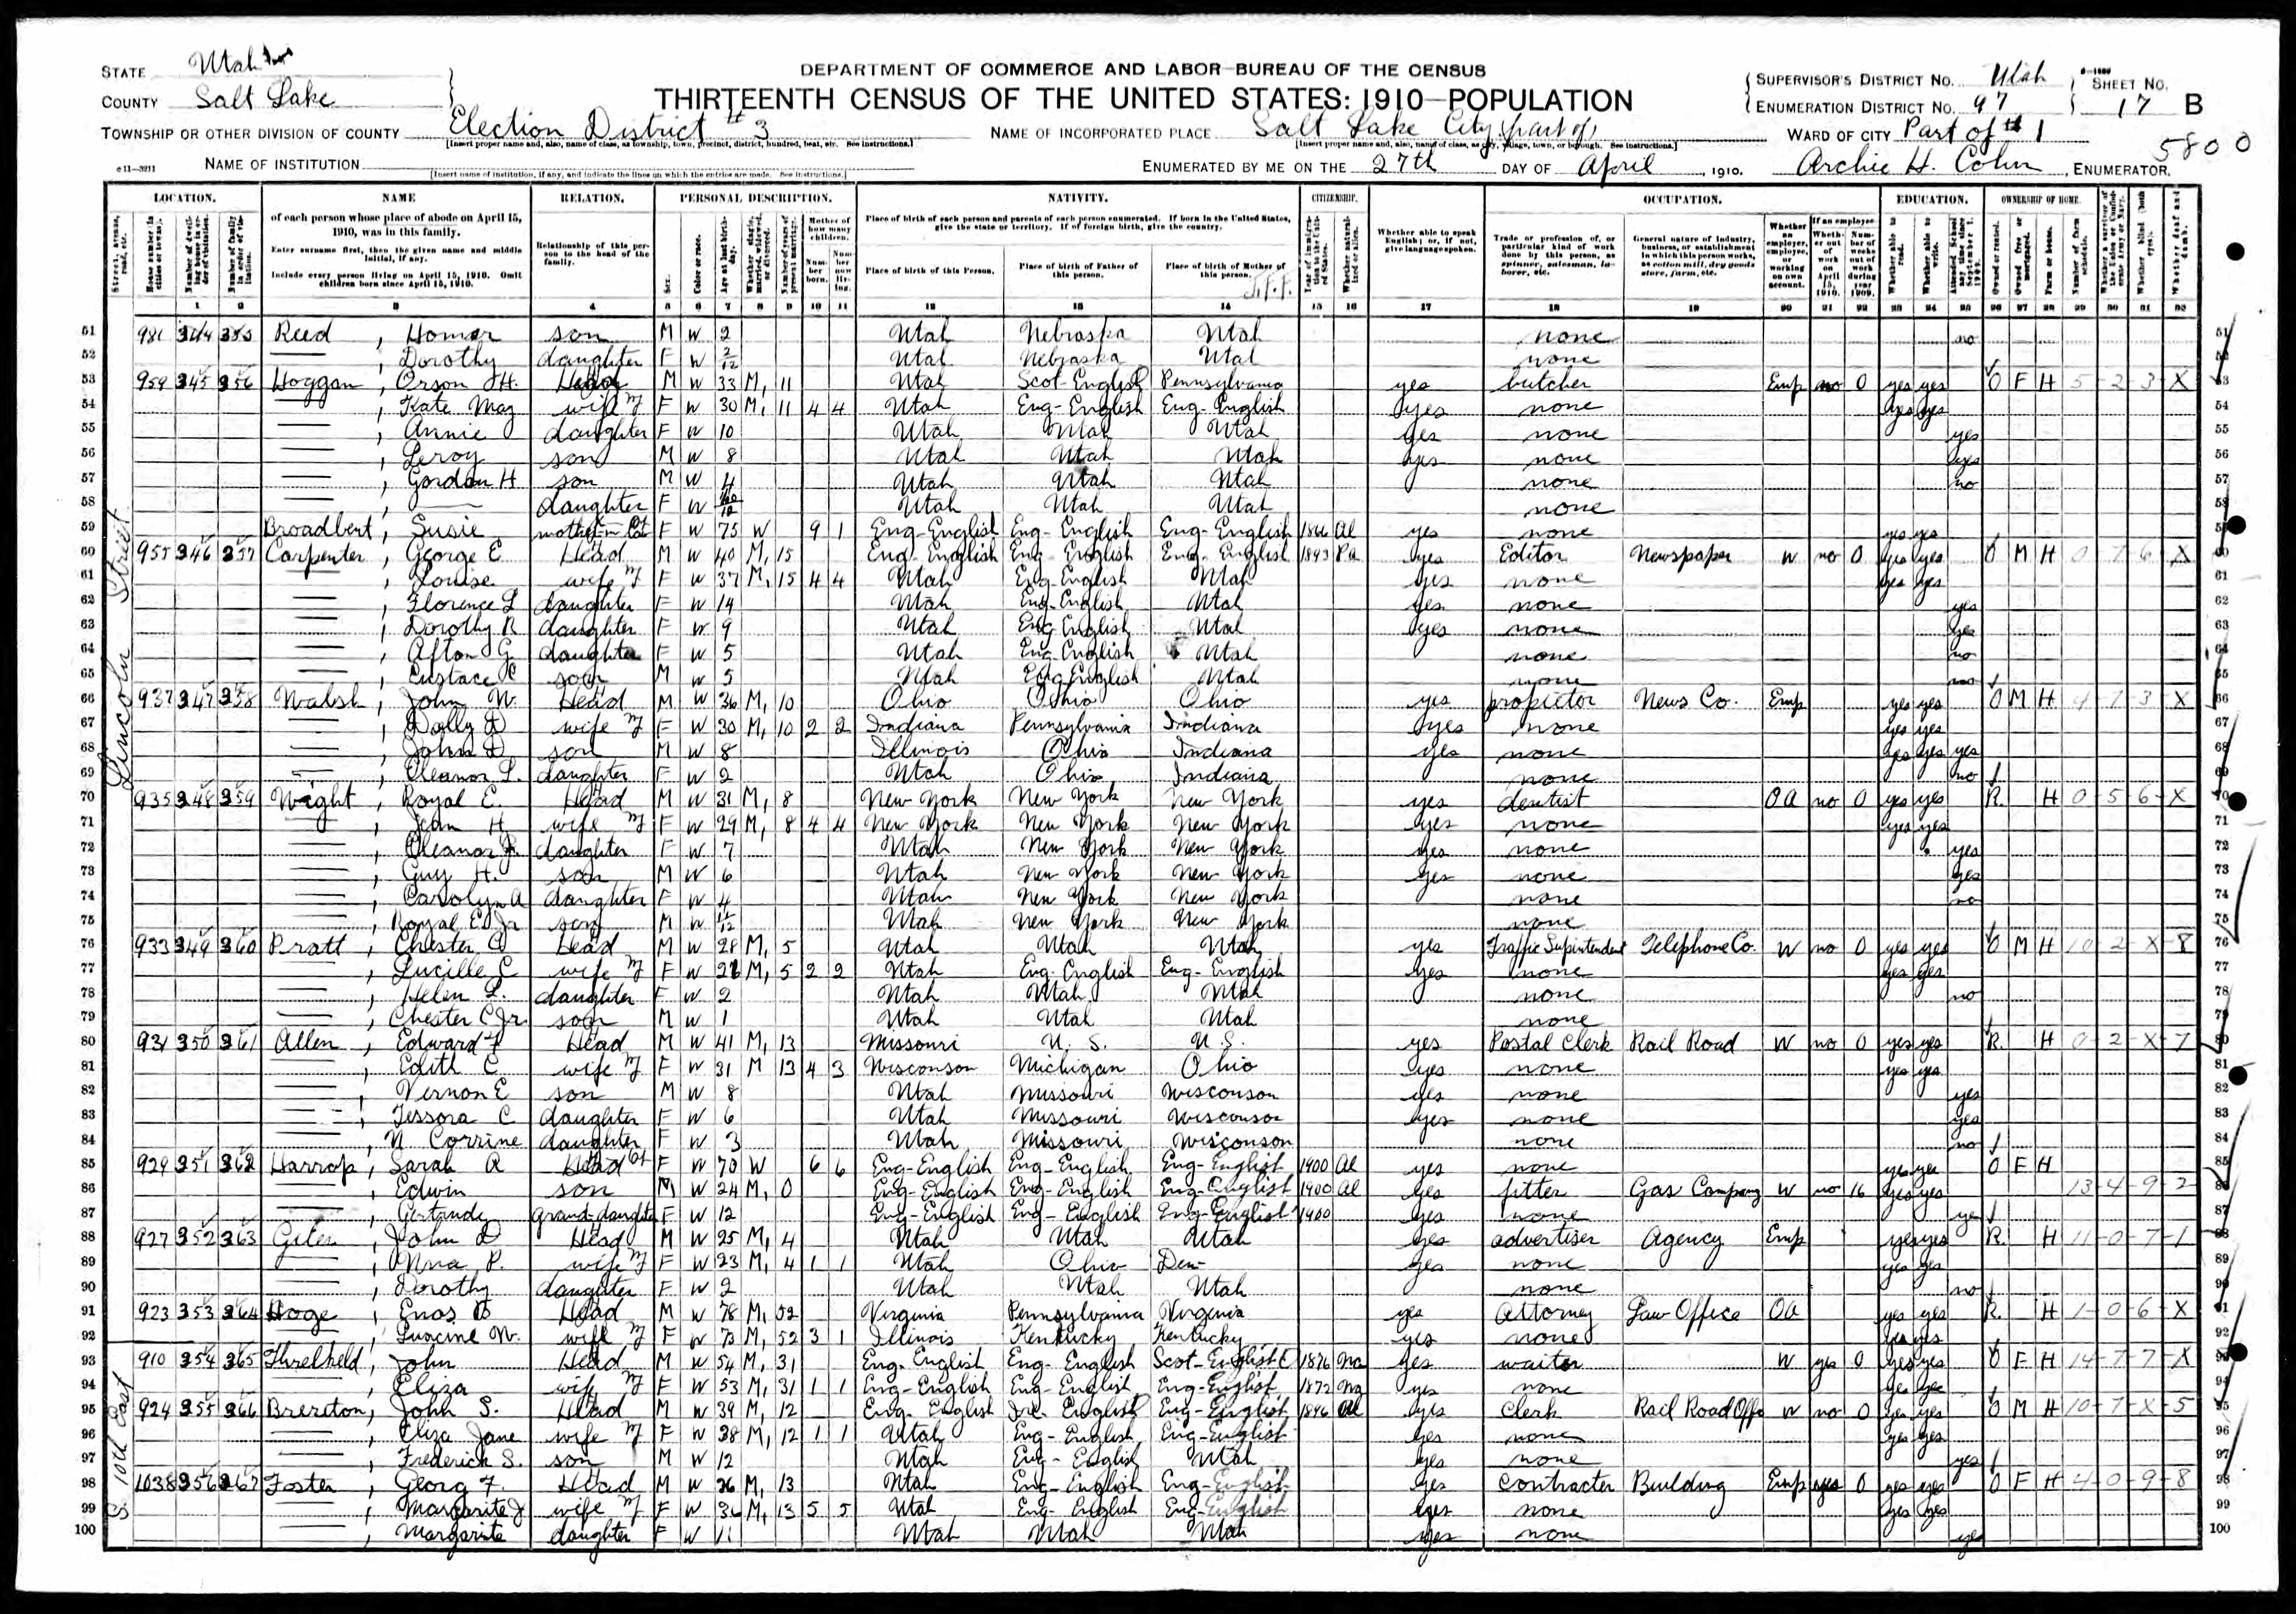 STATE Utah
COUNTY Salt Lake
TOWNSHIP OR OTHER DIVISION OF COUNTY Election District #3
[Insert proper name and, also, name of class, as township, town, precinct, district, hundred, beat, etc. See instructions.]
NAME OF INSTITUTION
[Insert name of institution, if any, and indicate the lines on which the entries are made. See instructions.]
DEPARTMENT OF COMMERCE AND LABOR—BUREAU OF THE CENSUS
THIRTEENTH CENSUS OF THE UNITED STATES: 1910—POPULATION
NAME OF INCORPORATED PLACE Salt Lake City (part of)
[Insert proper name and, also, name of class, as city, village, town, or borough. See instructions.]
ENUMERATED BY ME ON THE 27th DAY OF April, 1910. Archie H. Cohn, ENUMERATOR.
SUPERVISOR'S DISTRICT NO. Utah
ENUMERATION DISTRICT NO. 97
SHEET NO. 17 B
WARD OF CITY Part of #1
5800
LOCATION. NAME RELATION. PERSONAL DESCRIPTION. NATIVITY. CITIZENSHIP. OCCUPATION. EDUCATION. OWNERSHIP OF HOME.
of each person whose place of abode on April 15, 1910, was in this family.
Enter surname first, then the given name and middle initial, if any.
Include every person living on April 15, 1910. Omit children born since April 15, 1910.
Relationship of this person to the head of the family.
Place of birth of each person and parents of each person enumerated. If born in the United States, give the state or territory. If of foreign birth, give the country.
Place of birth of this Person. Place of birth of Father of this person. Place of birth of Mother of this person.
Whether able to speak English; or, if not, give language spoken.
Trade or profession of, or particular kind of work done by this person, as spinner, salesman, laborer, etc.
General nature of industry, business, or establishment in which this person works, as cotton mill, dry goods store, farm, etc.
Lincoln Street
51 981 344 355 Reed, Homer son M W 2 Utah Nebraska Utah none no
52 Dorothy daughter F W 2/12 Utah Nebraska Utah none
53 959 345 356 Hoggan, Orson H. Head M W 33 M1 11 Utah Scot English Pennsylvania yes butcher Emp no 0 yes yes O F H 5-2-3-X
54 Kate May wife F W 30 M1 11 4 4 Utah Eng-English Eng-English yes none yes yes
55 Annie daughter F W 10 Utah Utah Utah yes none yes
56 Leroy son M W 8 Utah Utah Utah yes none yes
57 Gordon H son M W 4 Utah Utah Utah none no
58 daughter F W Utah Utah Utah none
59 Broadbent, Susie mother-in-law F W 75 W 9 1 Eng-English Eng-English Eng-English 1866 Al yes none yes yes
60 955 346 357 Carpenter, George E Head M W 40 M1 15 Eng-English Eng English Eng-English 1893 Pa yes Editor Newspaper W no 0 yes yes O M H 0-7-6-X
61 Louise wife F W 37 M1 15 4 4 Utah Eng-English Utah yes none yes yes
62 Florence L daughter F W 14 Utah Eng-English Utah yes none yes
63 Dorothy R daughter F W 9 Utah Eng English Utah yes none yes
64 Afton G daughter F W 5 Utah Eng English Utah none no
65 Eustace C son M W 5 Utah Eng English Utah none no
66 937 347 358 Walsh, John W. Head M W 36 M1 10 Ohio Ohio Ohio yes propietor News Co. Emp yes yes O M H 4-7-3-X
67 Dolly D wife F W 30 M1 10 2 2 Indiana Pennsylvania Indiana yes none yes yes
68 John D son M W 8 Illinois Ohio Indiana yes none yes yes yes
69 Eleanor L. daughter F W 2 Utah Ohio Indiana none no
70 935 348 359 Wight, Royal E. Head M W 31 M1 8 New York New York New York yes dentist OA no 0 yes yes R H 0-5-6-X
71 Jean H wife F W 29 M1 8 4 4 New York New York New York yes none yes yes
72 Eleanor daughter F W 7 Utah New York New York yes none yes
73 Guy H. son M W 6 Utah New York New York yes none yes
74 Carolyn A daughter F W 4 Utah New York New York none no
75 Royal E Jr son M W Utah New York New York none
76 933 349 360 Pratt, Chester C Head M W 28 M1 5 Utah Utah Utah yes Traffic Supintendent Telephone Co. W no 0 yes yes O M H 10-2-X-8
77 Lucille C wife F W M1 5 2 2 Utah Eng English Eng-English yes none yes yes
78 Helen L. daughter F W 2 Utah Utah Utah none no
79 Chester C Jr. son M W 1 Utah Utah Utah none
80 931 350 361 Allen, Edward F Head M W 41 M1 13 Missouri U.S. U.S. yes Postal Clerk Rail Road W no 0 yes yes R H 0-2-X-7
81 Edith C wife F W 31 M 13 4 3 Wisconson Michigan Ohio yes none yes yes
82 Vernon E son M W 8 Utah Missouri Wisconson yes none yes
83 Tessora C daughter F W 6 Utah Missouri Wisconson yes none yes
84 N Corrine daughter F W 3 Utah Missouri Wisconson none no
85 929 351 362 Harrop, Sarah A Head F W 70 W 6 6 Eng-English Eng-English Eng-English 1900 Al yes none yes yes O F H
86 Edwin son M W 24 M1 0 Eng-English Eng-English Eng-English 1900 Al yes fitter Gas Company W no 16 yes yes 13-4-9-2
87 Gertrude Grand-daughter F W 12 Eng-English Eng-English Eng-English 1900 yes none yes
88 927 352 363 Giles, John D Head M W 25 M1 4 Utah Utah Utah yes advertiser Agency Emp yes yes R H 11-0-7-1
89 Anna P. wife F W 23 M1 4 1 1 Utah Ohio Den yes none yes yes
90 Dorothy daughter F W 2 Utah Utah Utah none no
91 923 353 364 Hoge, Enos D Head M W 78 M1 52 Virginia Pennsylvania Virginia yes Attorney Law Office OA yes yes R H 1-0-6-X
92 wife F W 73 M1 52 3 1 Illinois Kentucky Kentucky yes none yes yes
S. 10th East
93 910 354 365 Threlkeld, John Head M W 54 M1 31 Eng-English Eng-English Scot-English 1876 Na yes waiter W yes 0 yes yes O F H 14-7-7-X
94 Eliza wife F W 53 M1 31 1 1 Eng-English Eng-English Eng-English 1872 Na yes none yes yes
95 924 355 366 Brereton, John S. Head M W 39 M1 12 Eng-English Ire-English Eng-English 1886 Al yes Clerk Rail Road Offc W no 0 yes yes O M H 10-7-X-5
96 Eliza Jane wife F W 38 M1 12 1 1 Utah Eng-English Eng-English yes none yes yes
97 Frederick S. son M W 12 Utah Eng-English Utah yes none yes
98 1038 356 367 Foster, Georg F. Head M W 36 M1 13 Utah Eng-English Eng-English yes Contracter Building Emp yes 0 yes yes O F H 4-0-9-8
99 Margarite J wife F W 36 M1 13 5 5 Utah Eng-English Eng-English yes none yes yes
100 Margarite daughter F W 11 Utah Utah Utah yes none yes